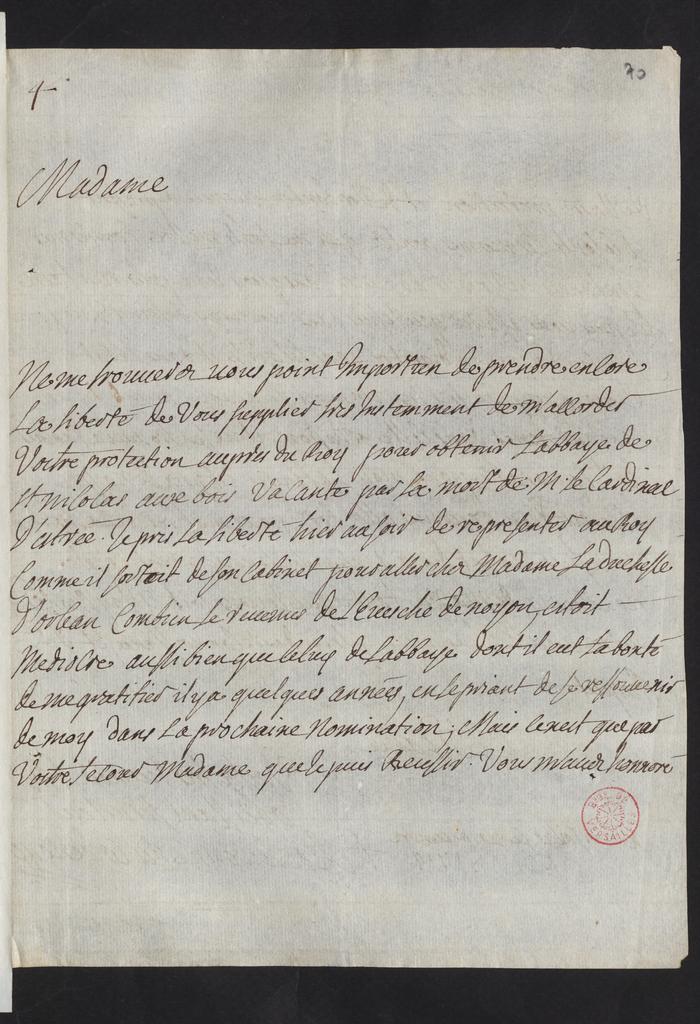 70
+
Madame
Ne me trouverer vous point Importun de prendre enCore
La liberté de Vous supplier tres Instemment de M'accorder
Vostre protection aupres du Roy pour obtenir L'abbaye de
St Nicolas aux bois Vacante par La mort de M. le Cardinal
D'Estrée. Je pris La liberté hier au soir de representer au Roy
Comme il sortoit de son Cabinet pour aller ches Madame La duchesse
D'orlean Combien Le revenus de L'Evesché de noyon, estoit
Mediocre aussi bien que Celuy de Labbaye dont il eut La bonté
de me gratifier il y a quelques années, en Le priant de se ressouvenir
de moy dans La prochaine Nomination; Mais ce n'est que par
Vostre secours Madame que Je puis Reussir. Vous m'aues honnoré
BIBL. DE VERSAILLES